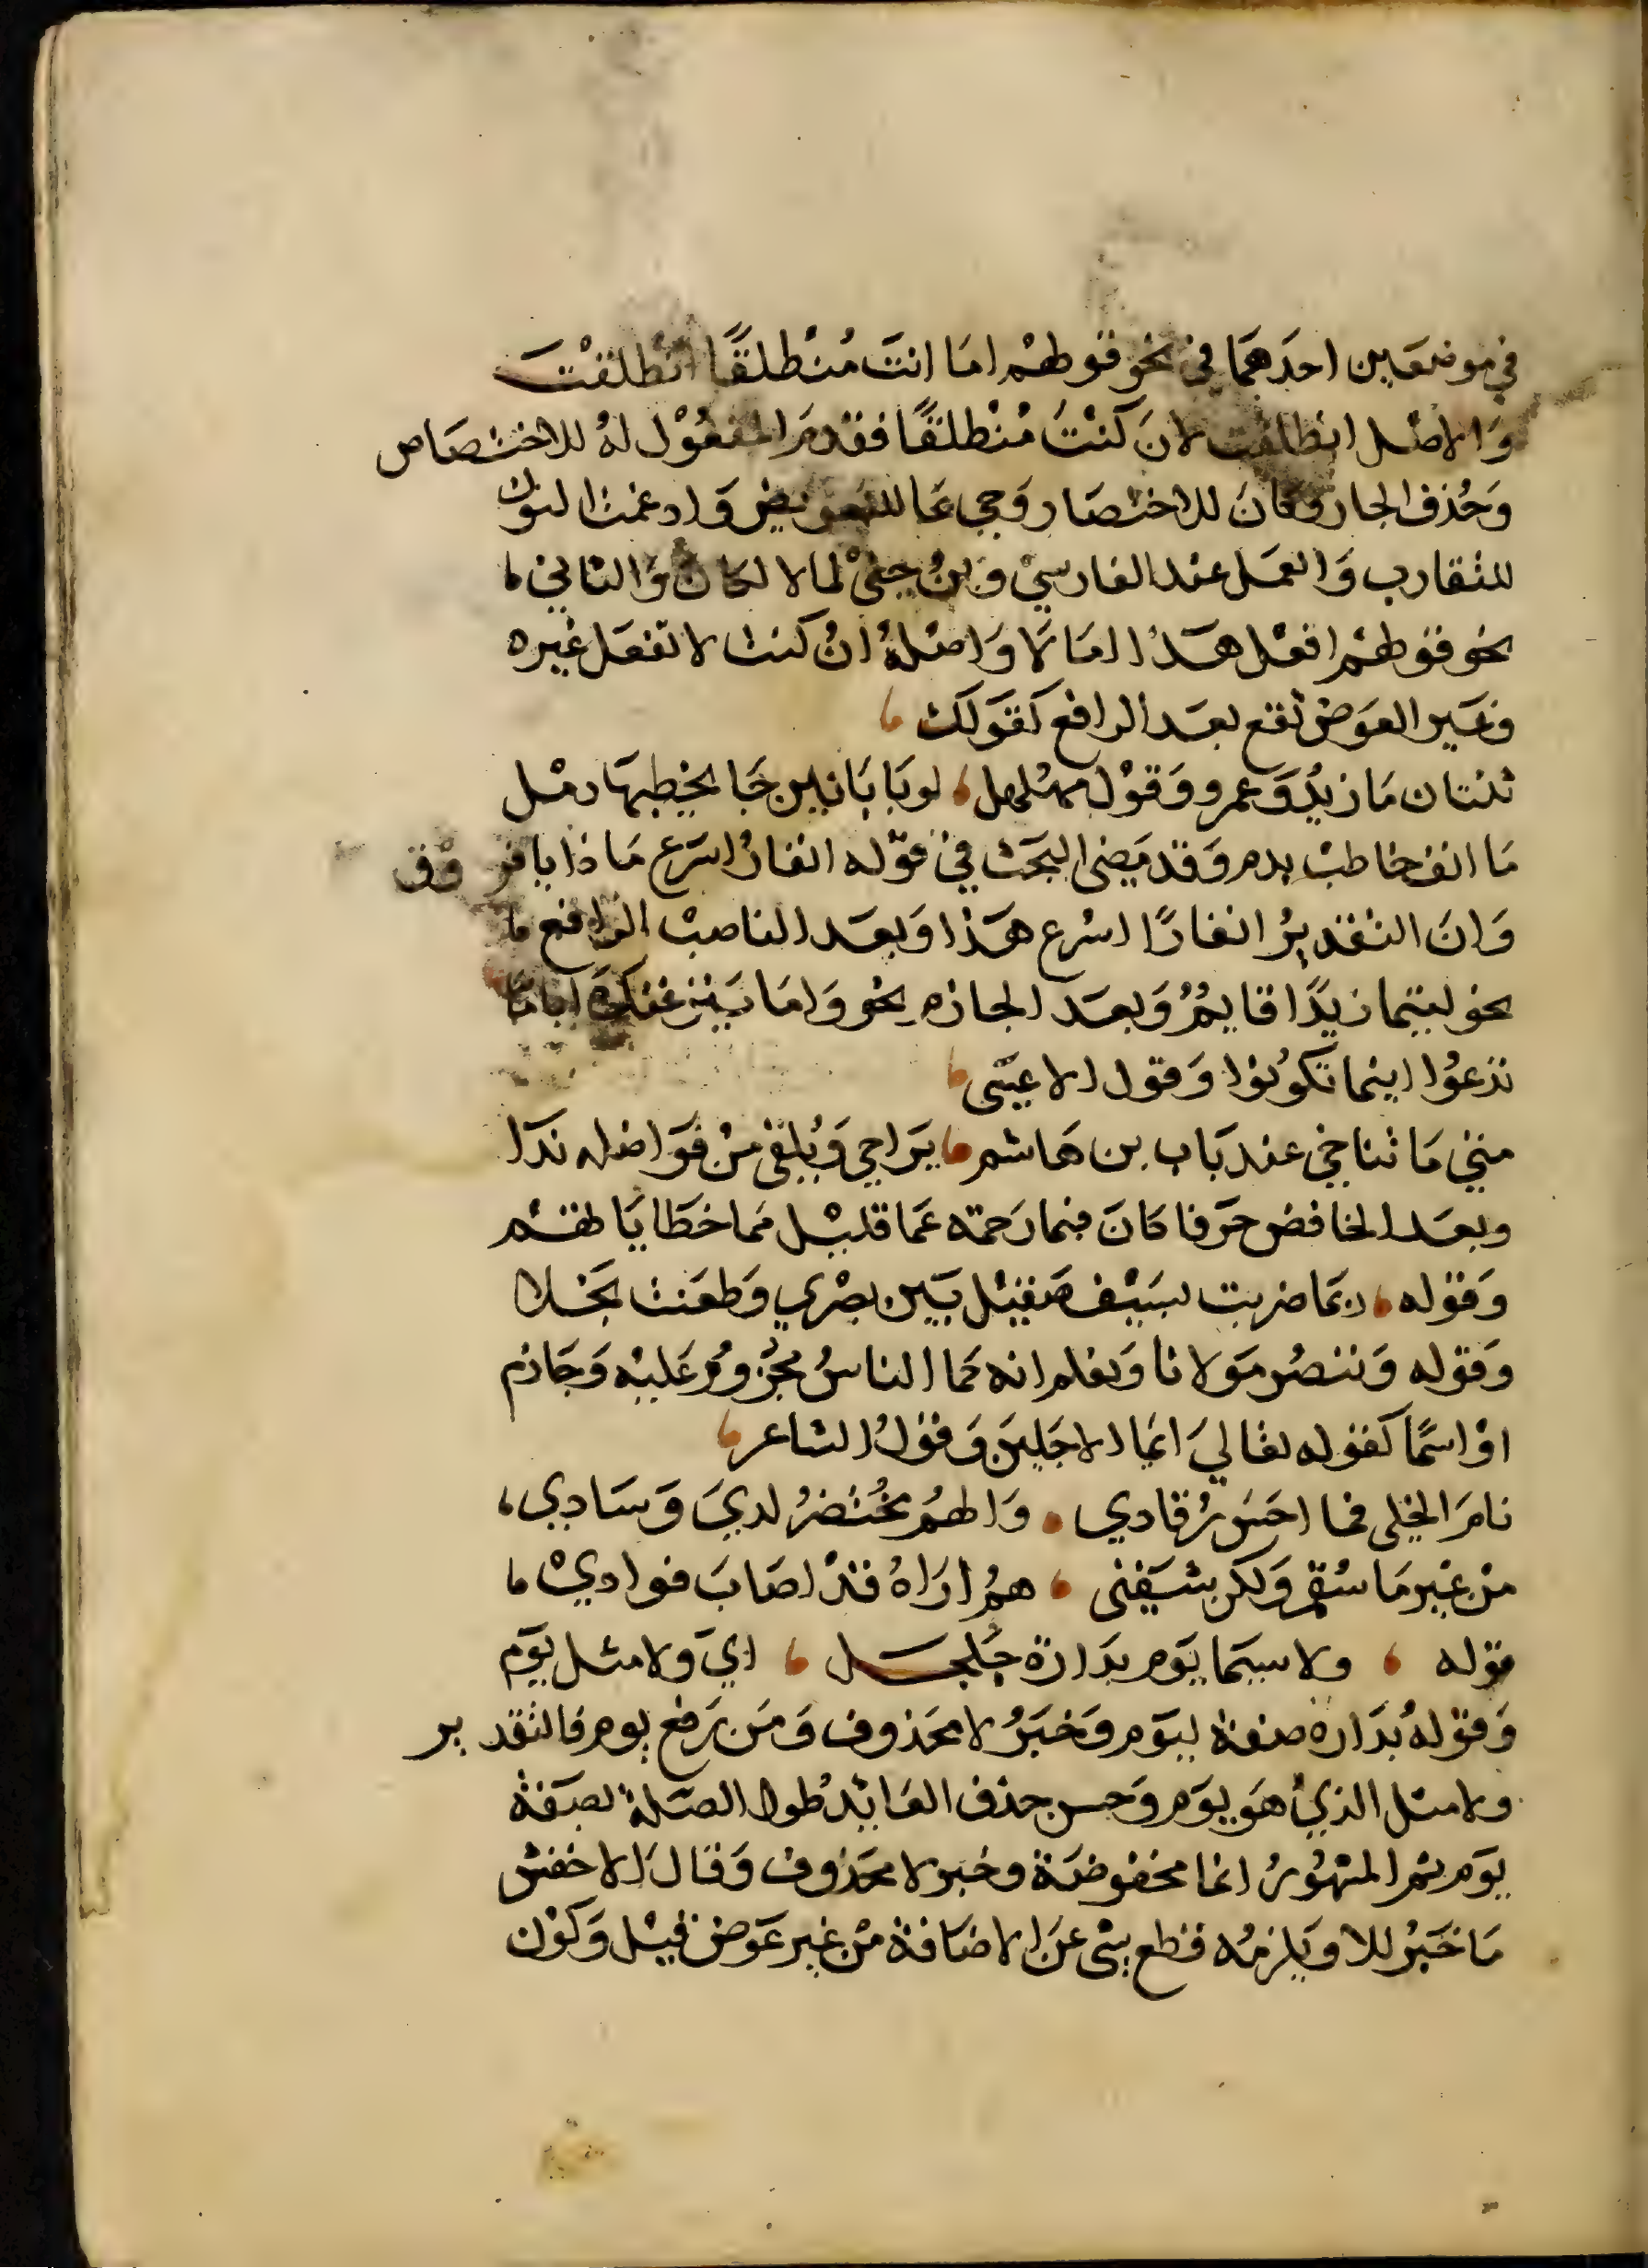 في موضعين احدهما في نحو قولهم اما انتَ مُنْطلقًا انطلقْتَ
وَالاصْل انطلقت لانَ كنْتَ مُنْطلقًا فقدمَ المفعُوْل لهُ للاختصَاص
وَحُذف الجار وكانَ للاختصَار وَجي عَا للتعويض وَادغمت النون
للتقارب وَالعمَل عند الفارسيّ وَبنُ جنىْ لما لا لكان وَالثاني ما
نحو قولهم افعْل هَذا اما لَا وَاصْلهُ انْ كنت لا تفعَل غيره
وغَير العوَض تقع بعد الرافع كقوَلك
شتان مَا زيدٌ وَعمرو وَقوْل مهلهل لو بَا بَانين جَا يخطبهَا رمْل
مَا انف خاطبْ بدم وَقد مَضى البحَث في قوّله انفارُ اسَرع مَا ذا يا فروْق
وَانَ التقديرُ انفارًا اسْرع هَذا وَبعَد الناصبْ الرافع ما
نحو ليتما زيدًا قايمٌ وَبعَد الجازم نحو وَامَا يَنزغنك ايامّا
تدعُوا اينما تكوُنوا وَقول الاعشى
متىْ مَا تناخي عند بَاب بن هَاشم تراحي وَتُلقىْ منْ فَوَاضله ندَا
وبعَد الخافض حرَفا كانَ فبما رَحمة عَما قليْل مَما خطَايَاهم
وَقوله ربمَا ضربت بسَيْف صَقيْل بَيَن بصْري وَطعَنت نجَلا
وَقوله وَننصُر مَولانا وَنعلم انه كمَا الناسُ مجرُومٌ عَليْه وَجَارم
اوْ اسمًا كقوله تعَالىَ ايمَا الاجَلينَ وَقوْلُ الشاعر
نامَ الخلى فما احَسَ رُقادي وَالهمُ مُحْتضرُ لديَ وَسَادي
منْ غيْر مَا سُقمٍ وَلكن شفنى همٌ ارَاهُ قدْ اصَابَ فوادي ما
قوله ولا سيمَا يوَم بدَارة جَلجَل ايَ ولا مثل يوَم
وَقوْلهُ بدَاره صفة ليوَم وَخبَرُ لا محَذوف وَمَن رَفع يوم فالتقدير
ولا مثل الذيْ هوَ يوَم وَحسن حذف العَايدْ طول الصلة بصَفة
يوَم ثم المشهُورُ انما مخفوضَة وخبر لا محَذوف وَقالَ الاخفش
مَا خَبرْ للا وَيلزمُه قطع سِى عَن الاضَافة منْ غير عَوض قيْل وَكوْن